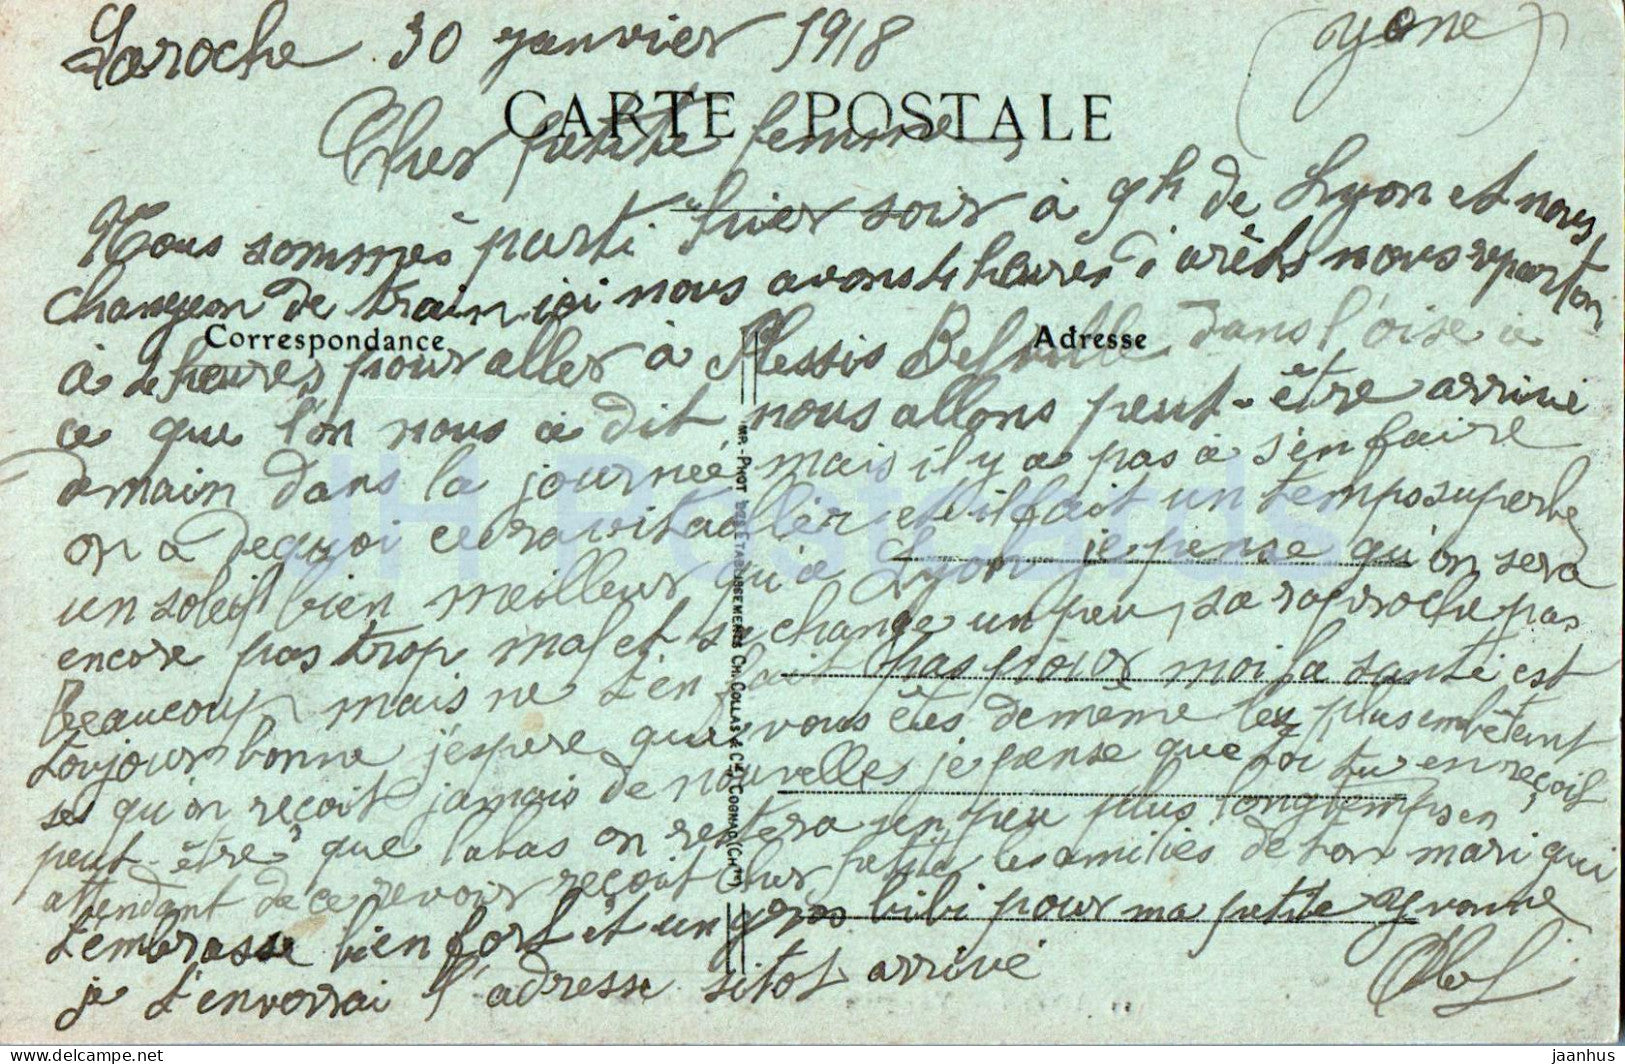 Laroche 30 janvier 1918 (yone)
CARTE POSTALE
Cher petite femme,
Nous sommes parti hier soir à 9h de Lyon et nous
changeon de train ici nous avons 4 heures d'arêts nous reparton
Correspondance
Adresse
à 2 heures pour aller à Plessis Belville dans l'oise à
ce que l'on nous à dit nous allons peut-être arrivé
demain dans la journeé mais il y a pas à s'en faire
on a de quoi ce ravitaller et il fait un temp superbe
un soleil bien meilleur qu'à Lyon je pense qu'on sera
encore pas trop mal et sa change un peu, sa raproche pas
beaucoup mais ne t'en fait pas pour moi la santé est
toujour bonne j'espere que vous êtes de même le plus embêtant
ses qu'on reçoit jamais de nouvelles je pense que toi tu en reçois
peut-être que labas on restera un peu plus longtemps en
attendant de ce revoir reçoit cher petite les amitiés de ton mari qui
t'embrasse bien fort et un gros bibi pour ma petite
je t'enverrai l'adresse sitot arrivé
IMP.-PHOT DES ETABLISSEMENTS CH. COLLAS & Cie, COGNAC (Chte)
JH Postcards
www.delcampe.net
jaanhus